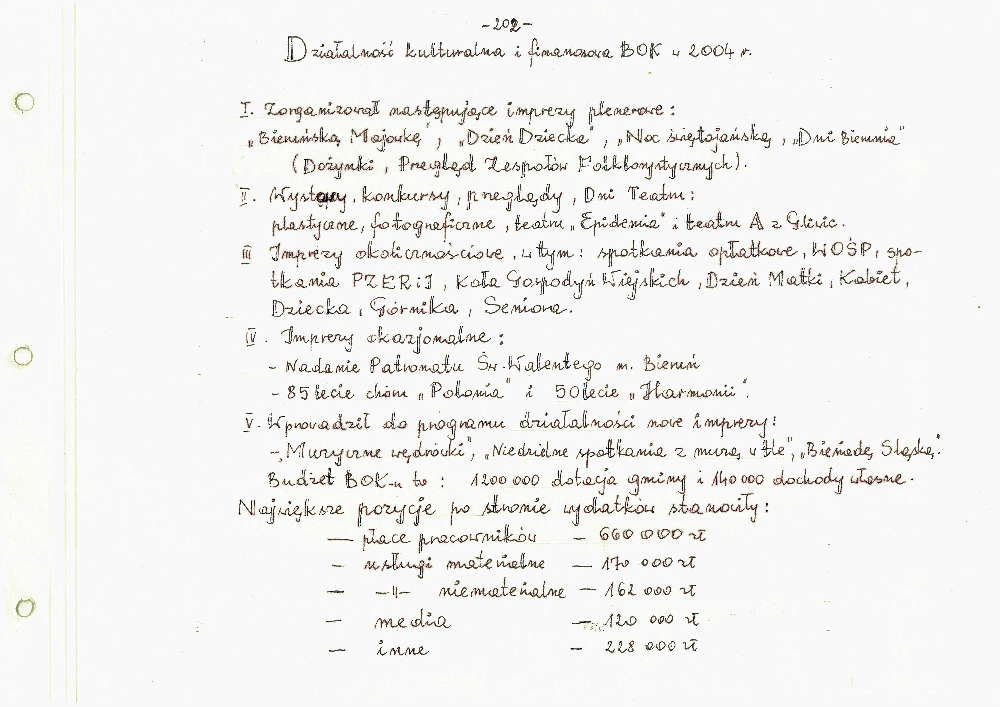 -202-
Działalność kulturalna i finansowa BOK w 2004 r.
I. Zorganizował następujące imprezy plenerowe:
„Bieruńską Majówkę", „Dzień Dziecka", „Noc świętojańską, „Dni Bierunia"
(Dożynki, Przegląd Zespołów Folklorystycznych).
II. Wystawy, konkursy, przeglądy, Dni Teatru:
plastyczne, fotograficzne, teatru „Epidemia" i teatru A z Gliwic.
III Imprezy okolicznościowe, w tym: spotkania opłatkowe, WOŚP, spo-
tkania PZERiI, Koła Gospodyń Wiejskich, Dzień Matki, Kobiet,
Dziecka, Górnika, Seniora.
IV. Imprezy okazjonalne:
- Nadanie Patronatu Św. Walentego m. Bieruń
- 85 lecie chóru „Polonia" i 50 lecie „Harmonii".
V. Wprowadził do programu działalności nowe imprezy:
- „Muzyczne wędrówki", „Niedzielne spotkania z muzą w tle", „Biesiadę Śląską".
Budżet BOK-u to: 1200 000 dotacja gminy i 140 000 dochody własne.
Największe pozycje po stronie wydatków stanowiły:
— płace pracowników - 660 000 zł
- usługi materialne — 170 000 zł
- -"- niematerialne - 162 000 zł
- media - 120 000 zł
- inne - 228 000 zł